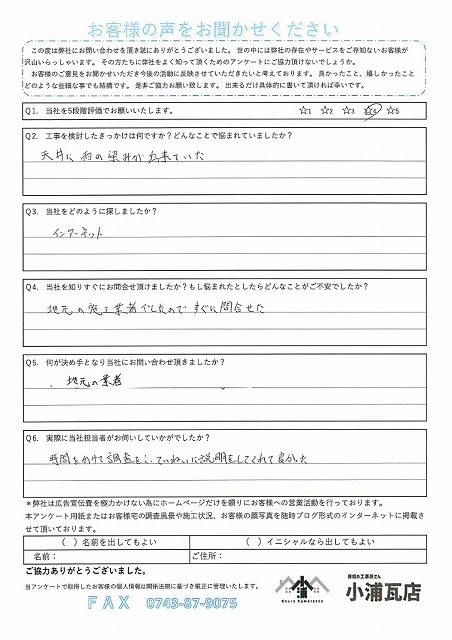 お客様の声をお聞かせください
この度は弊社にお問い合わせを頂き誠にありがとうございました。世の中には弊社の存在やサービスをご存知ないお客様が
沢山いらっしゃいます。その方たちに弊社をよく知って頂くためのアンケートにご協力頂けないでしょうか。
お客様のご意見をお聞かせいただき今後の活動に反映させていただきたいと考えております。良かったこと、嬉しかったこと
どのような些細な事でも結構です。是非ご協力お願い致します。出来るだけ具体的に書いて頂ければ幸いです。
Q1. 当社を5段階評価でお願いいたします。 ☆1 ☆2 ☆3 ☆4 ☆5
Q2. 工事を検討したきっかけは何ですか？どんなことで悩まれていましたか？
天井に雨の染みが出来ていた
Q3. 当社をどのように探しましたか？
インターネット
Q4. 当社を知りすぐにお問合せ頂けましたか？もし悩まれたとしたらどんなことがご不安でしたか？
地元の施工業者でしたのですぐに問合せた
Q5. 何が決め手となり当社にお問い合わせ頂きましたか？
・地元の業者
Q6. 実際に当社担当者がお伺いしていかがでしたか？
時間をかけて調査をし、ていねいに説明をしてくれて良かった
＊弊社は広告宣伝費を極力かけない為にホームページだけを頼りにお客様への営業活動を行っております。
本アンケート用紙またはお客様宅の調査風景や施工状況、お客様の顔写真を随時ブログ形式のインターネットに掲載さ
せて頂いております。
（ ）名前を出してもよい （ ）イニシャルなら出してもよい
名前： ご住所：
ご協力ありがとうございました。
当アンケートで取得したお客様の個人情報は関係法規に基づき厳正に管理いたします。
FAX 0743-87-9075
Koura Kawaraten
屋根の工事屋さん
小浦瓦店